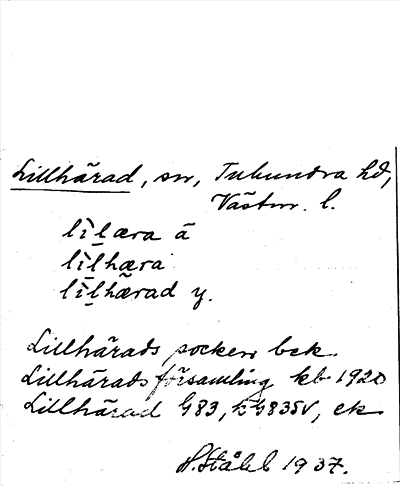 Lillhärad, sn, Tuhundra hd,
Västm. l.
lìḷæra ä
lìḷhæra
lìḷhærad y.
Lillhärads socken bek
Lillhärads församling kb 1920
Lillhärad G83, ek
H. Ståhl 1937.